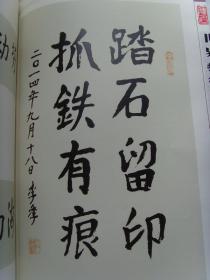 踏石留印
抓鉄有痕
二〇一四年九月十八日